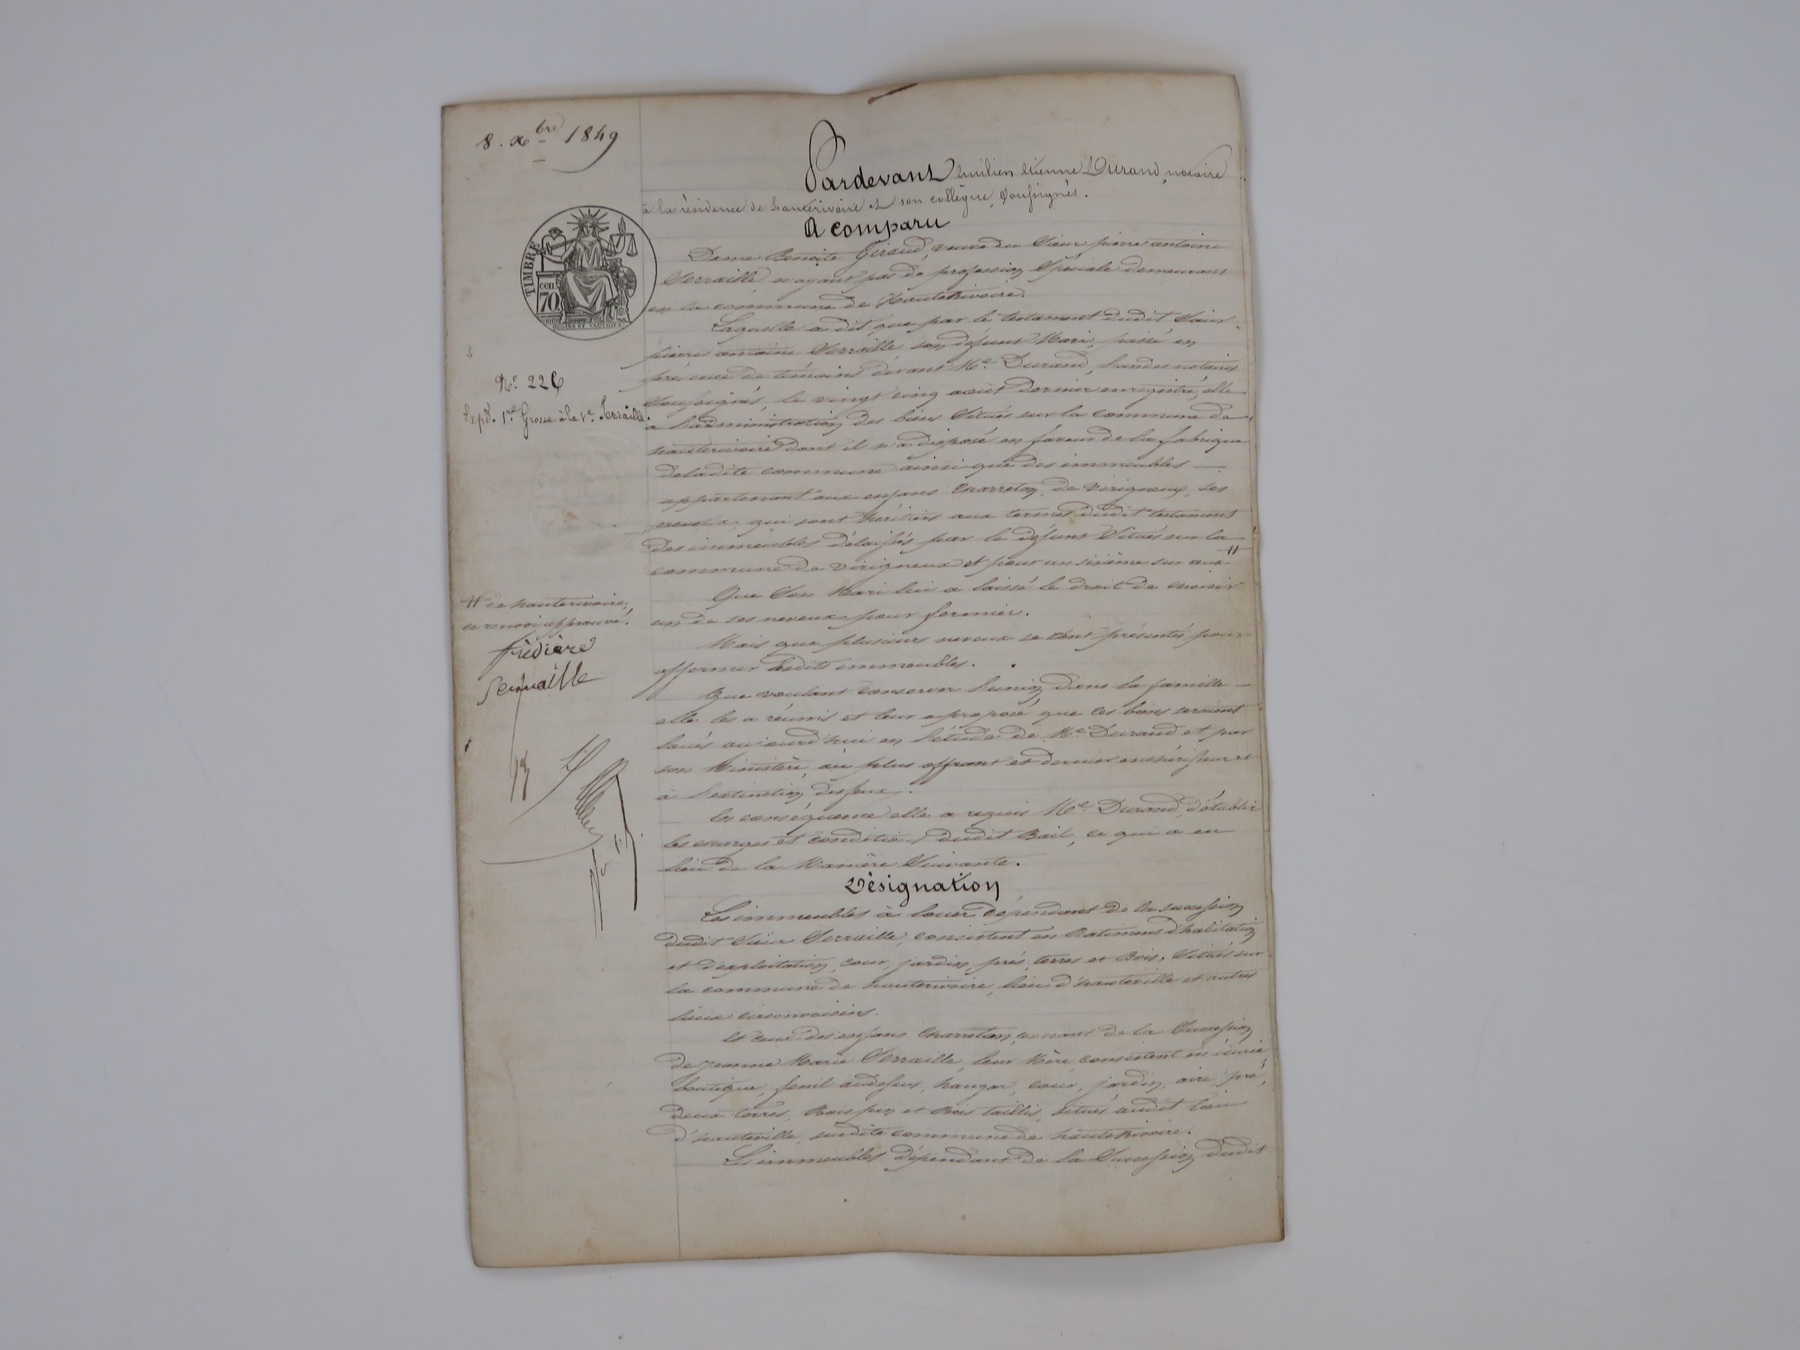 8. Xbre 1849
TIMBRE
cen
70.
N° 226
Expd. 1re Grosse à la Ve. Serraille.
Pardevant Emilien Etienne Durand, notaire
à la résidence de hauterivoire et son collègue, soussignés.
A comparu
Dame Benoite Giraud, veuve du sieur pierre antoine
Serraille n'ayant pas de profession spéciale demeurant
en la commune de hauterivoire.
Laquelle a dit que par le testament dudit sieur
pierre antoine Serraille, son défunt Mari, passé en
présence de témoins devant Me. Durand, l'un des notaires
soussignés, le vingt cinq août dernier enregistré, elle
a l'administration des biens situés sur la commune de
hauterivoire dont il a disposé en faveur de la fabrique
de ladite commune ainsi que des immeubles —
appartenant aux enfans Charreton, de Virigneux, ses
neveux, qui sont héritiers aux termes dudit testament
des immeubles délaissés par le défunt situés sur la
commune de Virigneux et pour un sixième sur ceux #
# de hauterivoire,
ce renvoi approuvé.
frédiere
Serraille
Que son Mari lui a laissé le droit de choisir
un de ses neveux pour fermier.
Mais que plusieurs neveux se sont présentés pour
affermer lesdits immeubles.
Que voulant conserver l'union dans la famille —
elle les a réunis et leur a proposé que ces biens seraient
loués aujourd'hui en l'étude de Me Durand et par
son Ministère, au plus offrant et dernier enchérisseur et
à l'extinction des feux.
En conséquence elle a requis Me Durand, d'établir
les charges et conditions dudit Bail, ce qui a eu
lieu de la Manière suivante.
Désignation
Les immeubles à louer dépendant de la succession
dudit sieur Serraille, consistent en batimens d'habitation
et d'exploitation, cour, jardin, prés, terres et Bois, situés sur
la commune de hauterivoire, lieu d'hauteville et autres
lieux circonvoisins.
Et ceux des enfans Charreton, venant de la succession
de jeanne Marie Serraille, leur Mère, consistent en écurie,
boutique, fenil audessus, hangar, cour, jardin, aire, pré,
deux terres, Bois pin et Bois taillis, situés audit lieu
d'hauteville, susdite commune de hauterivoire.
Les immeubles dépendant de la succession dudit